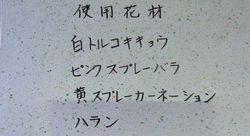 使用花材
白トルコキキョウ
ピンクスプレーバラ
黄スプレーカーネーション
ハラン